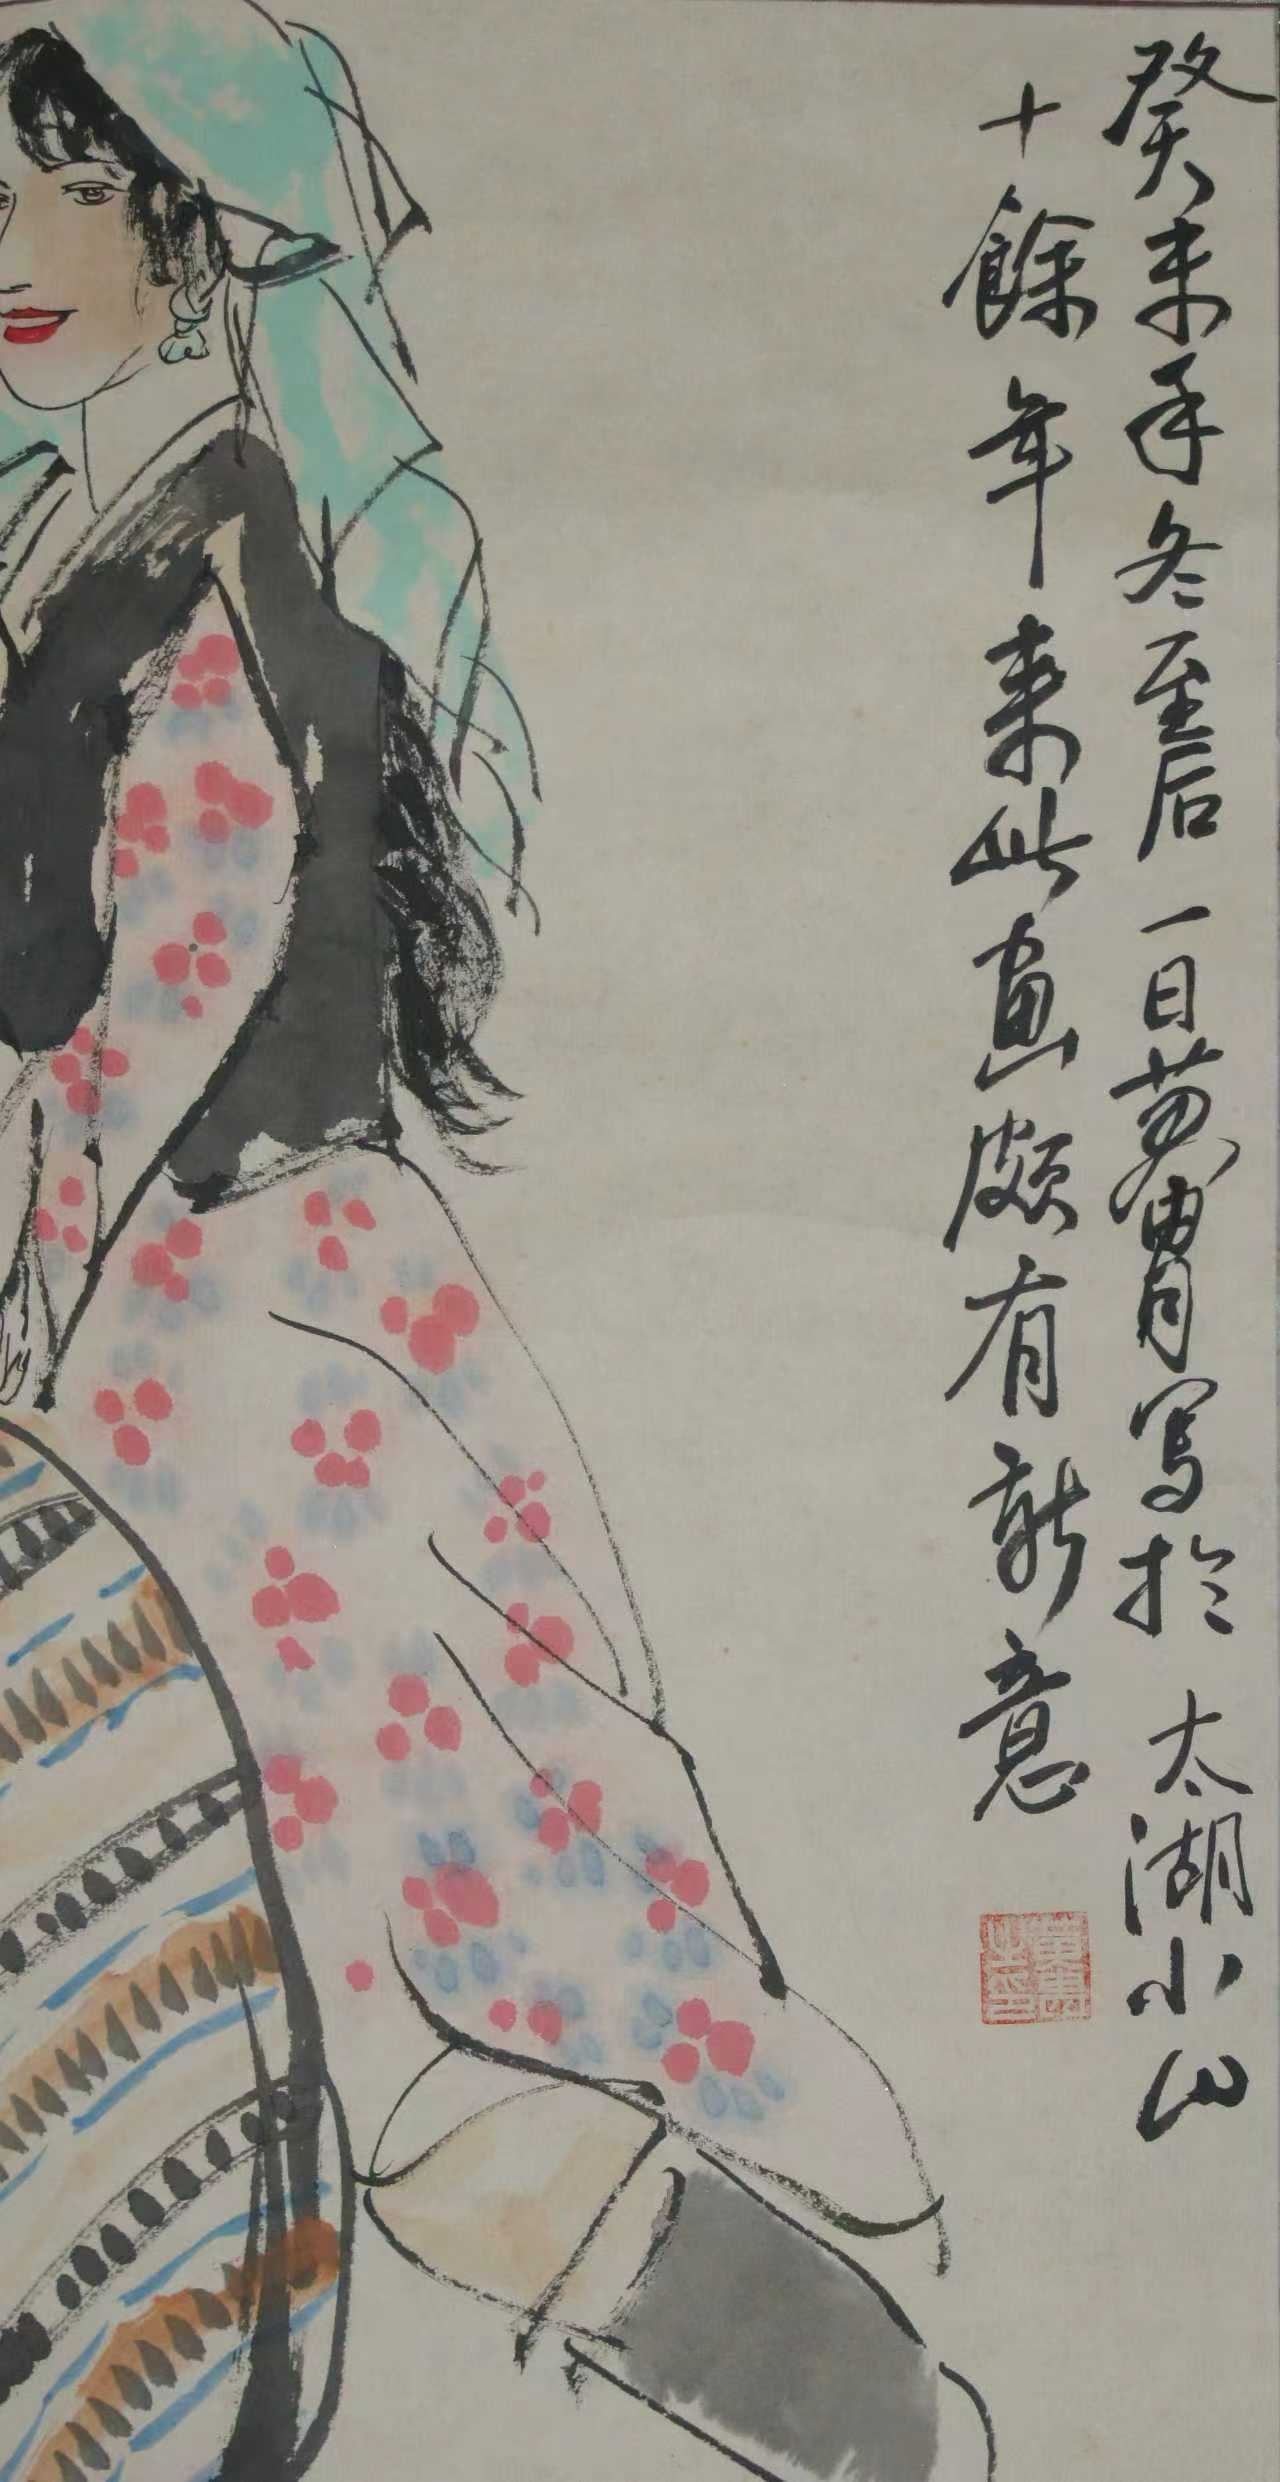 癸未年冬至后一日黄胄写於太湖小山
十餘年来此画颇有新意
黄胄之印